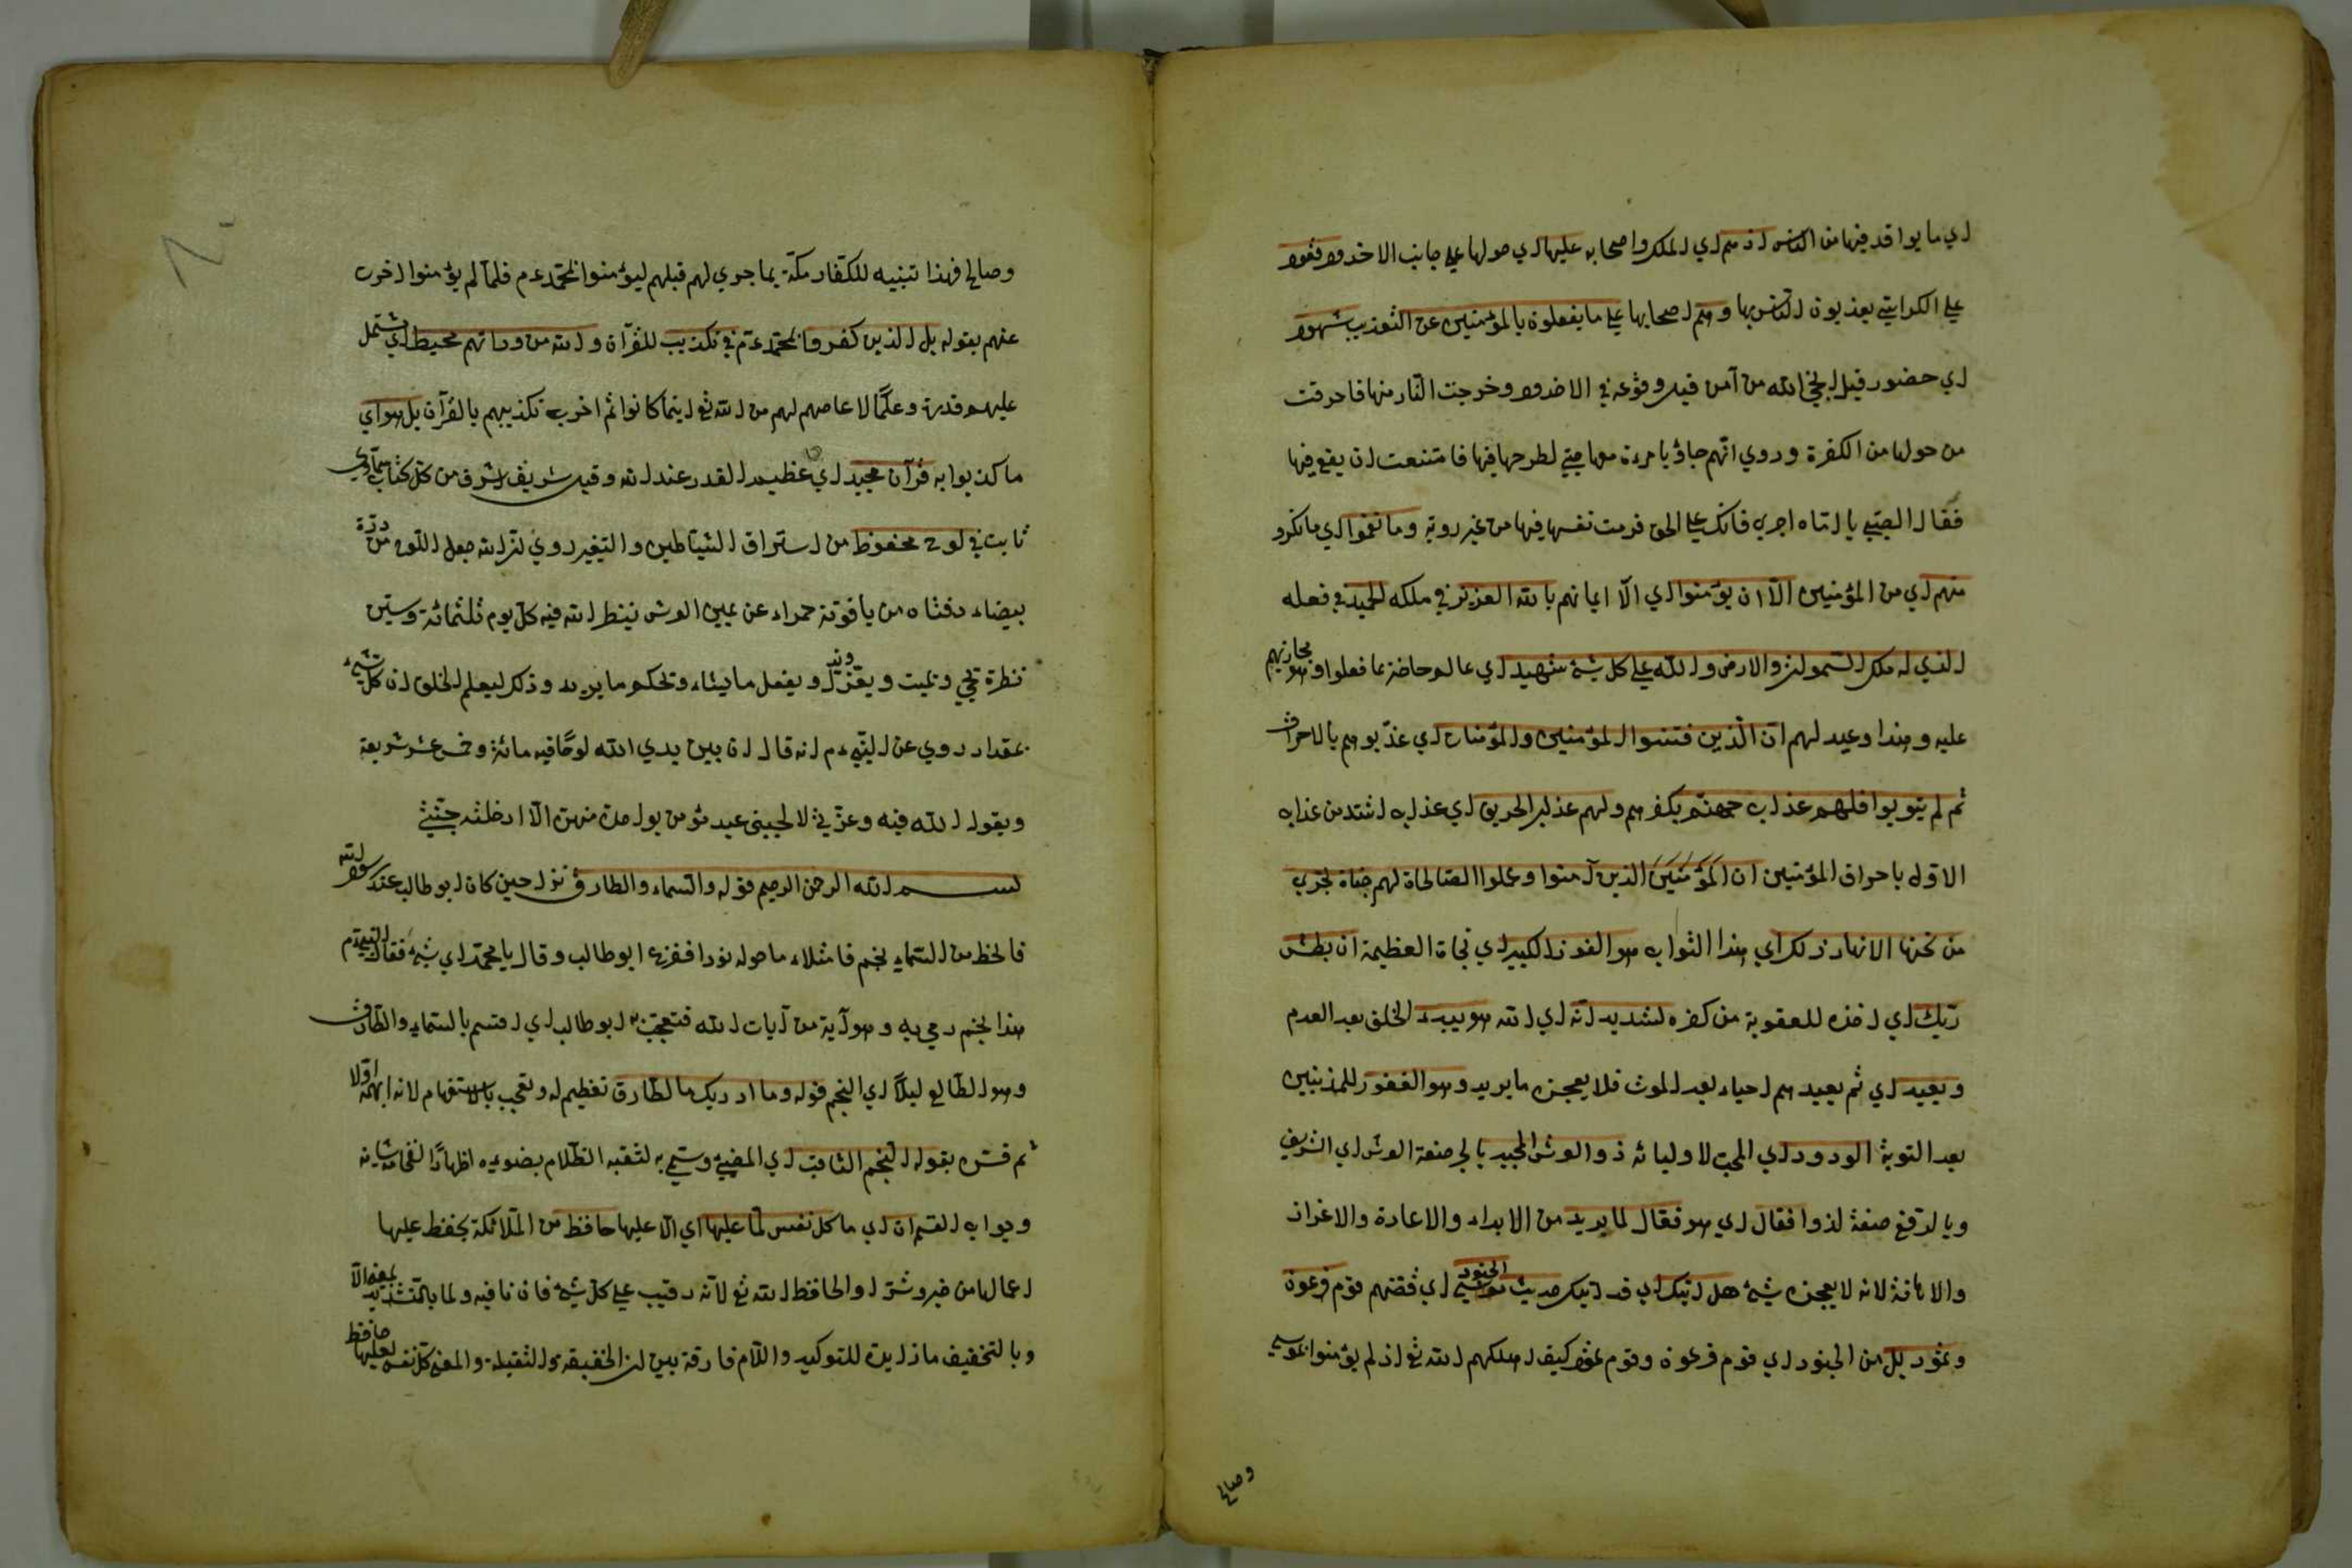 اي ما يواقد فيها من الناس اذ هم اي الملك واصحابه عليها اي حولها على جانب الاخدود قعود
على الكراسي يعذبون الناس بها وهم اي اصحابها على ما يفعلون بالمؤمنين من التعذيب شهود
اي حضور قيل انجى الله من آمن قبل وقوعه في الاخدود وخرجت النار منها فاحرقت
من حولها من الكفرة وروي انهم جاؤا بامرءة معها صبي لطرحها فيها فامتنعت ان يقع فيها
فقال الصبي يا اماه اصبري فانك على الحق فرمت نفسها فيها من غير روية وما نقموا اي ما انكروا
منهم اي من المؤمنين الا ان يؤمنوا اي الا ايمانهم بالله العزيز في ملكه الحميد في فعله
الذي له ملك السموات والارض والله على كل شئ شهيد اي عالم حاضر بما فعلوا وهو مجازيهم
عليه وهذا وعيد لهم ان الذين فتنوا المؤمنين والمؤمنات اي عذبوهم بالاحراق
ثم لم يتوبوا فلهم عذاب جهنم بكفرهم ولهم عذاب الحريق اي عذاب اشد من عذاب
الاول باحراق المؤمنين ان المؤمنين الذين آمنوا وعملوا الصالحات لهم جنات تجري
من تحتها الانهار ذلك اي هذا الثواب هو الفوز الكبير اي نجاة العظيمة ان بطش
ربك اي اخذه للعقوبة من كفره لشديد انه اي الله هو يبدء الخلق بعد العدم
ويعيد اي ثم يعيدهم احياء بعد الموت فلا يعجزه ما يريد وهو الغفور للمذنبين
بعد التوبة الودود اي المحب لاوليائه ذو العرش المجيد بالجر صفة العرش اي الشريف
وبالرفع صفة لذوا فعال اي هو فعال لما يريد من الابداء والاعادة والاعزاز
والاهانة لانه لا يعجزه شئ هل اتيك اي قد اتيك حديث الجنود اي قصتهم قوم فرعون
وثمود بدل من الجنود اي قوم فرعون وقوم ثمود كيف اهلكهم الله تع اذ لم يؤمنوا بموسى
وصالح
وصالح فهذا تنبيه للكفار مكة بما جرى لهم قبلهم ليؤمنوا بمحمد عم فلما لم يؤمنوا اخبر
عنهم بقوله بل الذين كفروا بمحمد عم في تكذيب للقرآن والله من ورائهم محيط اي يشتمل
عليهم قدرة وعلما لا عاصم لهم من الله تع اينما كانوا ثم اخبر تكذيبهم بالقرآن بل هو اي
ما كذبوا به قرآن مجيد اي عظيم القدر عند الله وقيل شريف اشرف من كل كتاب سماوي
ثابت في لوح محفوظ من استراق الشياطين والتغير روي ان الله جعل اللوح من درة
بيضاء دفتاه من ياقوتة حمراء عن يمين العرش ينظر الله فيه كل يوم ثلثمائة وستين
نظرة يحيي ويميت ويعز ويذل ويفعل ما يشاء ويحكم ما يريد وذلك ليعلم الخلق ان كل شئ
بمقدار روي عن النبي عم انه قال ان بين يدي الله لوحا فيه مائة وخمس عشر شريعة
ويقول الله فيه وعزتي لا يجيئني عبد مؤمن بواحدة منهن الا ادخلته جنتي
بسم الله الرحمن الرحيم قوله والسماء والطارق نزل حين كان ابو طالب عند رسول الله
فانحط من السماء نجم فامتلاء ما حوله نورا ففزع ابو طالب وقال يا محمد اي شئ فقال النبي عم
هذا نجم رمي به وهو آية من آيات الله فتعجب به ابو طالب اي اقسم بالسماء والطارق
وهو الطالع ليلا اي النجم قوله وما ادريك ما الطارق تعظيم له وتعجب بالاستفهام لانه ابهمه اولا
ثم فسره بقوله النجم الثاقب اي المضيئ وسمي به لثقبه الظلام بضوئه اظهارا لفخامة شانه
وجواب القسم ان اي ما كل نفس لما عليها اي الا عليها حافظ من الملائكة يحفظ عليها
اعمالها من خير وشر او الحافظ الله تع لانه رقيب على كل شئ فان نافيه ولما بالتشديد بمعنى الا
وبالتخفيف ما زايدة للتوكيد واللام فارقة بين ان الخفيفة والثقيلة والمعنى كل نفس لعليها حافظ